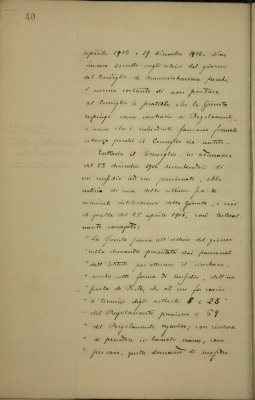 40
aprile 1906 e 19 dicembre 1906. Non
erano iscritte negli ordini del giorno
del Consiglio di Amministrazione perchè
è norma costante di non portare
al Consiglio le pratiche che la Giunta
respinge come contrarie ai Regolamenti,
a meno che i richiedenti facciano formale
istanza perchè il Consiglio sia sentito.
Tuttavia il Consiglio, in adunanza
del 23 dicembre 1906 deliberandosi di
un sussidio ad un pensionato, ebbe
notizia di una delle ultime fra le
accennate deliberazioni della Giunta, e cioè
di quella del 25 aprile 1906, così testual
mente concepita:
" La Giunta passa all'ordine del giorno
" sulla domanda presentata dai pensionati
" dell'Istituto per ottenere il rimborso,
" anche sotto forma di sussidio, dell'im
" posta di R. M. che ad essi fa carico
" a termini degli articoli 8 e 28
" del Regolamento pensioni e 69
" del Regolamento organico, con riserva
" di prendere in benevolo esame, caso
" per caso, quelle domande di sussidio